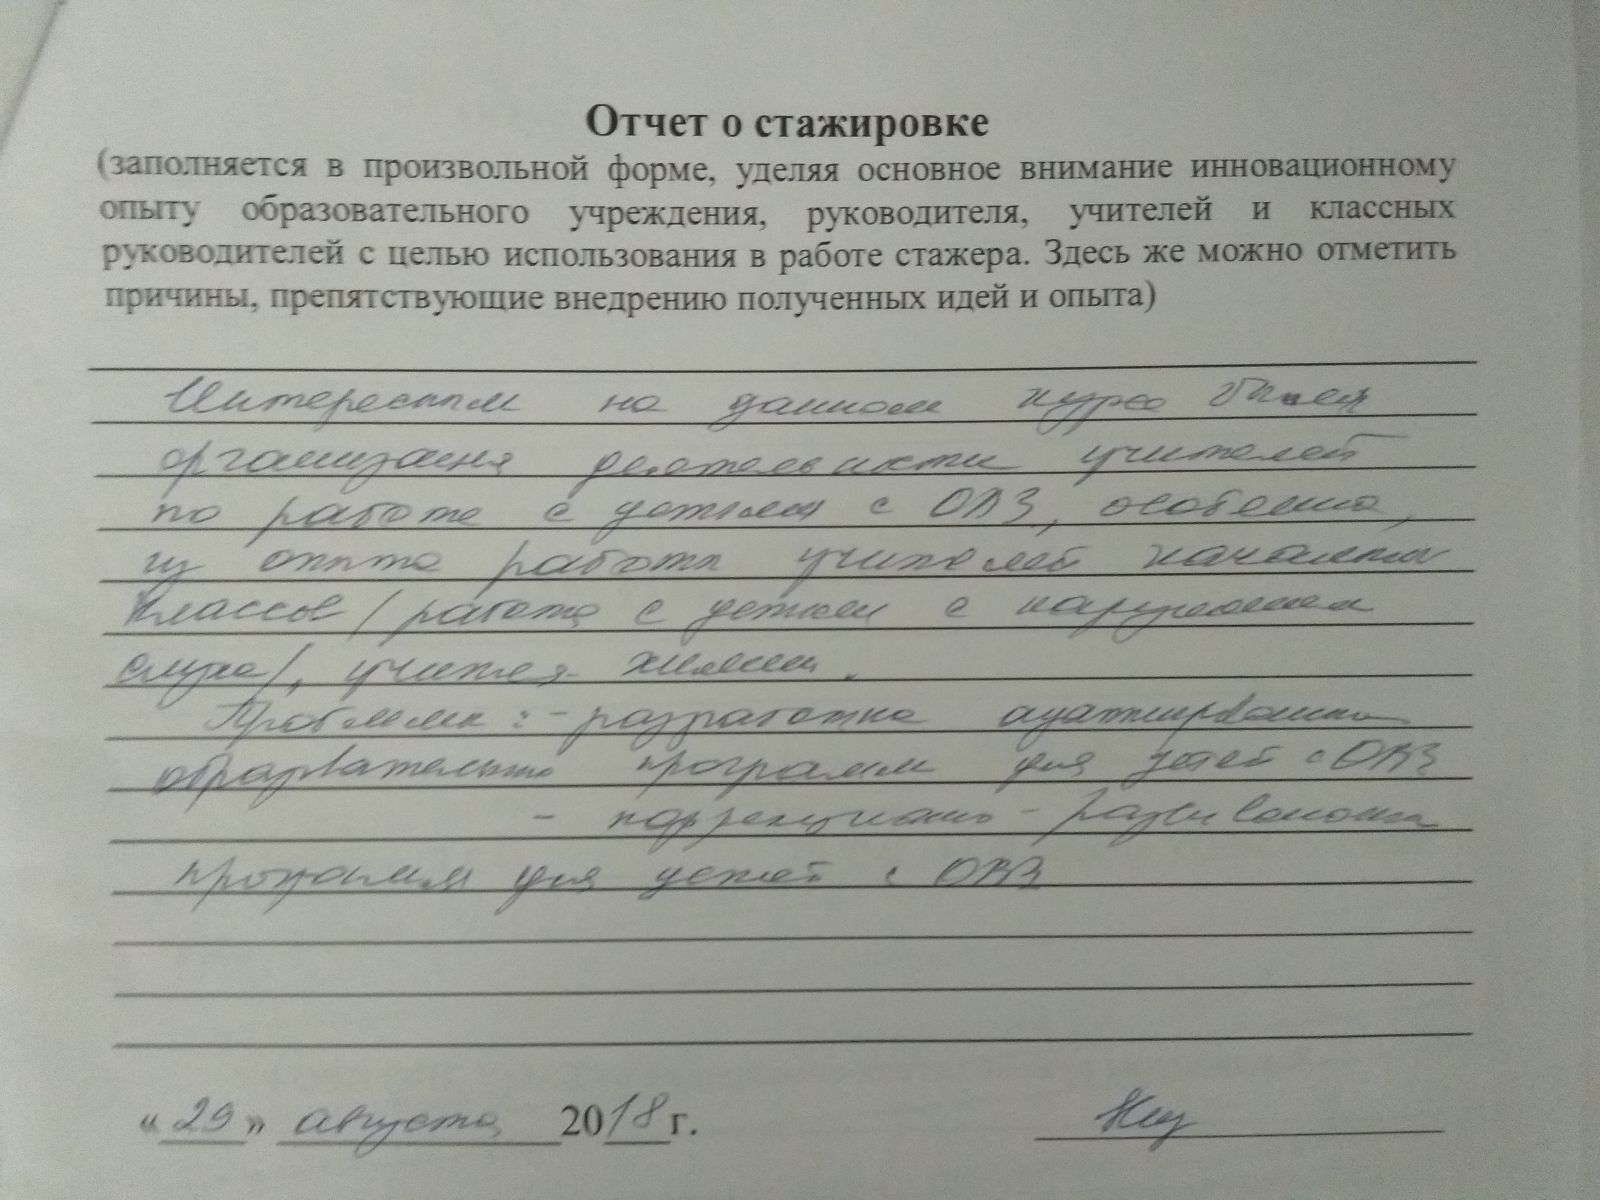 Отчет о стажировке
(заполняется в произвольной форме, уделяя основное внимание инновационному
опыту образовательного учреждения, руководителя, учителей и классных
руководителей с целью использования в работе стажера. Здесь же можно отметить
причины, препятствующие внедрению полученных идей и опыта)
Интересным на данном курсе была
организация деятельности учителей
по работе с детьми с ОВЗ, особенно,
из опыта работы учителей начальных
классов /работа с детьми с нарушением
слуха/, учителя химии.
Проблемы: - разработка адаптированных
образовательных программ для детей с ОВЗ
- коррекционно-развивающих
программ для детей с ОВЗ
«29» августа 2018 г.